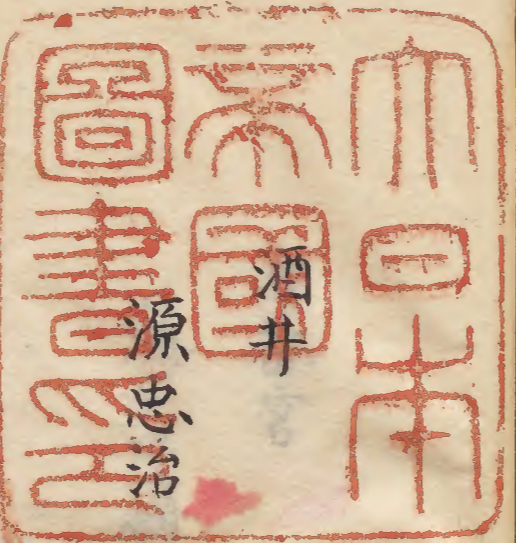 大日本
帝國
圖書印
酒井
源忠治